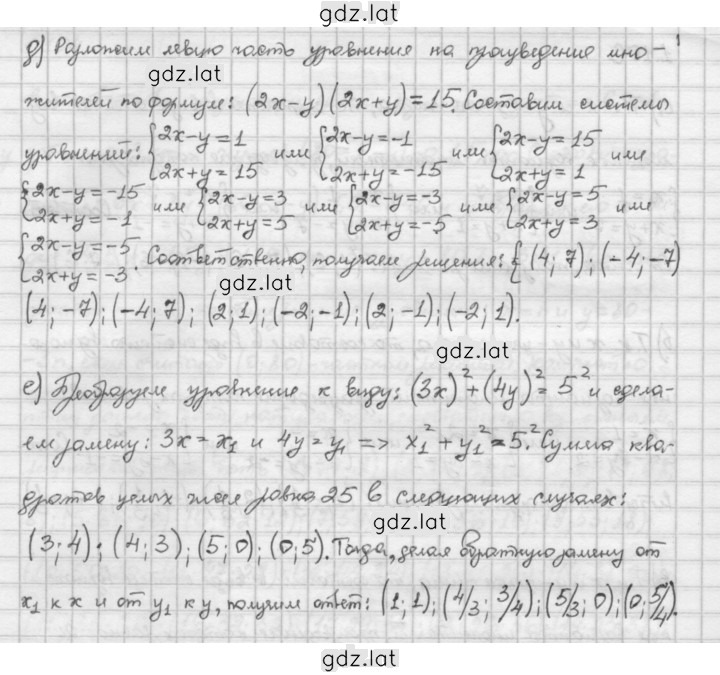 gdz.lat
д) Разложим левую часть уравнения на произведение мно-
gdz.lat
жителей по формуле: (2x-y)(2x+y)=15. Составим системы
уравнений: {2x-y=1 2x+y=15 или {2x-y=-1 2x+y=-15 или {2x-y=15 2x+y=1 или
{2x-y=-15 2x+y=-1 или {2x-y=3 2x+y=5 или {2x-y=-3 2x+y=-5 или {2x-y=5 2x+y=3 или
{2x-y=-5 2x+y=-3. Соответственно, получаем решения: { (4; 7); (-4; -7)
gdz.lat
(4; -7); (-4; 7); (2; 1); (-2; -1); (2; -1); (-2; 1).
gdz.lat
е) Преобразуем уравнение к виду: (3x)²+(4y)²=5² и сдела-
ем замену: 3x=x₁ и 4y=y₁ => x₁²+y₁²=5². Сумма ква-
дратов целых чисел равна 25 в следующих случаях:
gdz.lat
(3; 4); (4; 3); (5; 0); (0; 5). Тогда, делая обратную замену от
x₁ к x и от y₁ к y, получим ответ: (1; 1); (4/3; 3/4); (5/3; 0); (0; 5/4).
gdz.lat